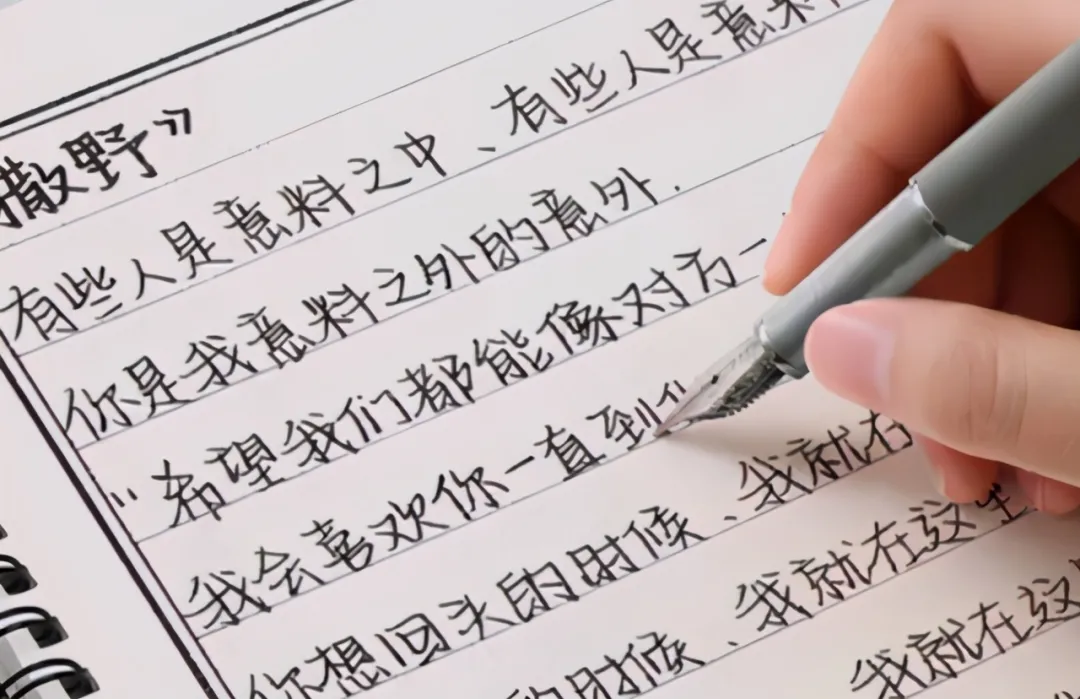 撒野》”
有些人是意料之中、有些人是意料
你是我意料之外的意外.
“希望我们都能像对方一
我会喜欢你一直到
你想回头的时候、我就在
的时候、我就在这里
我就在这